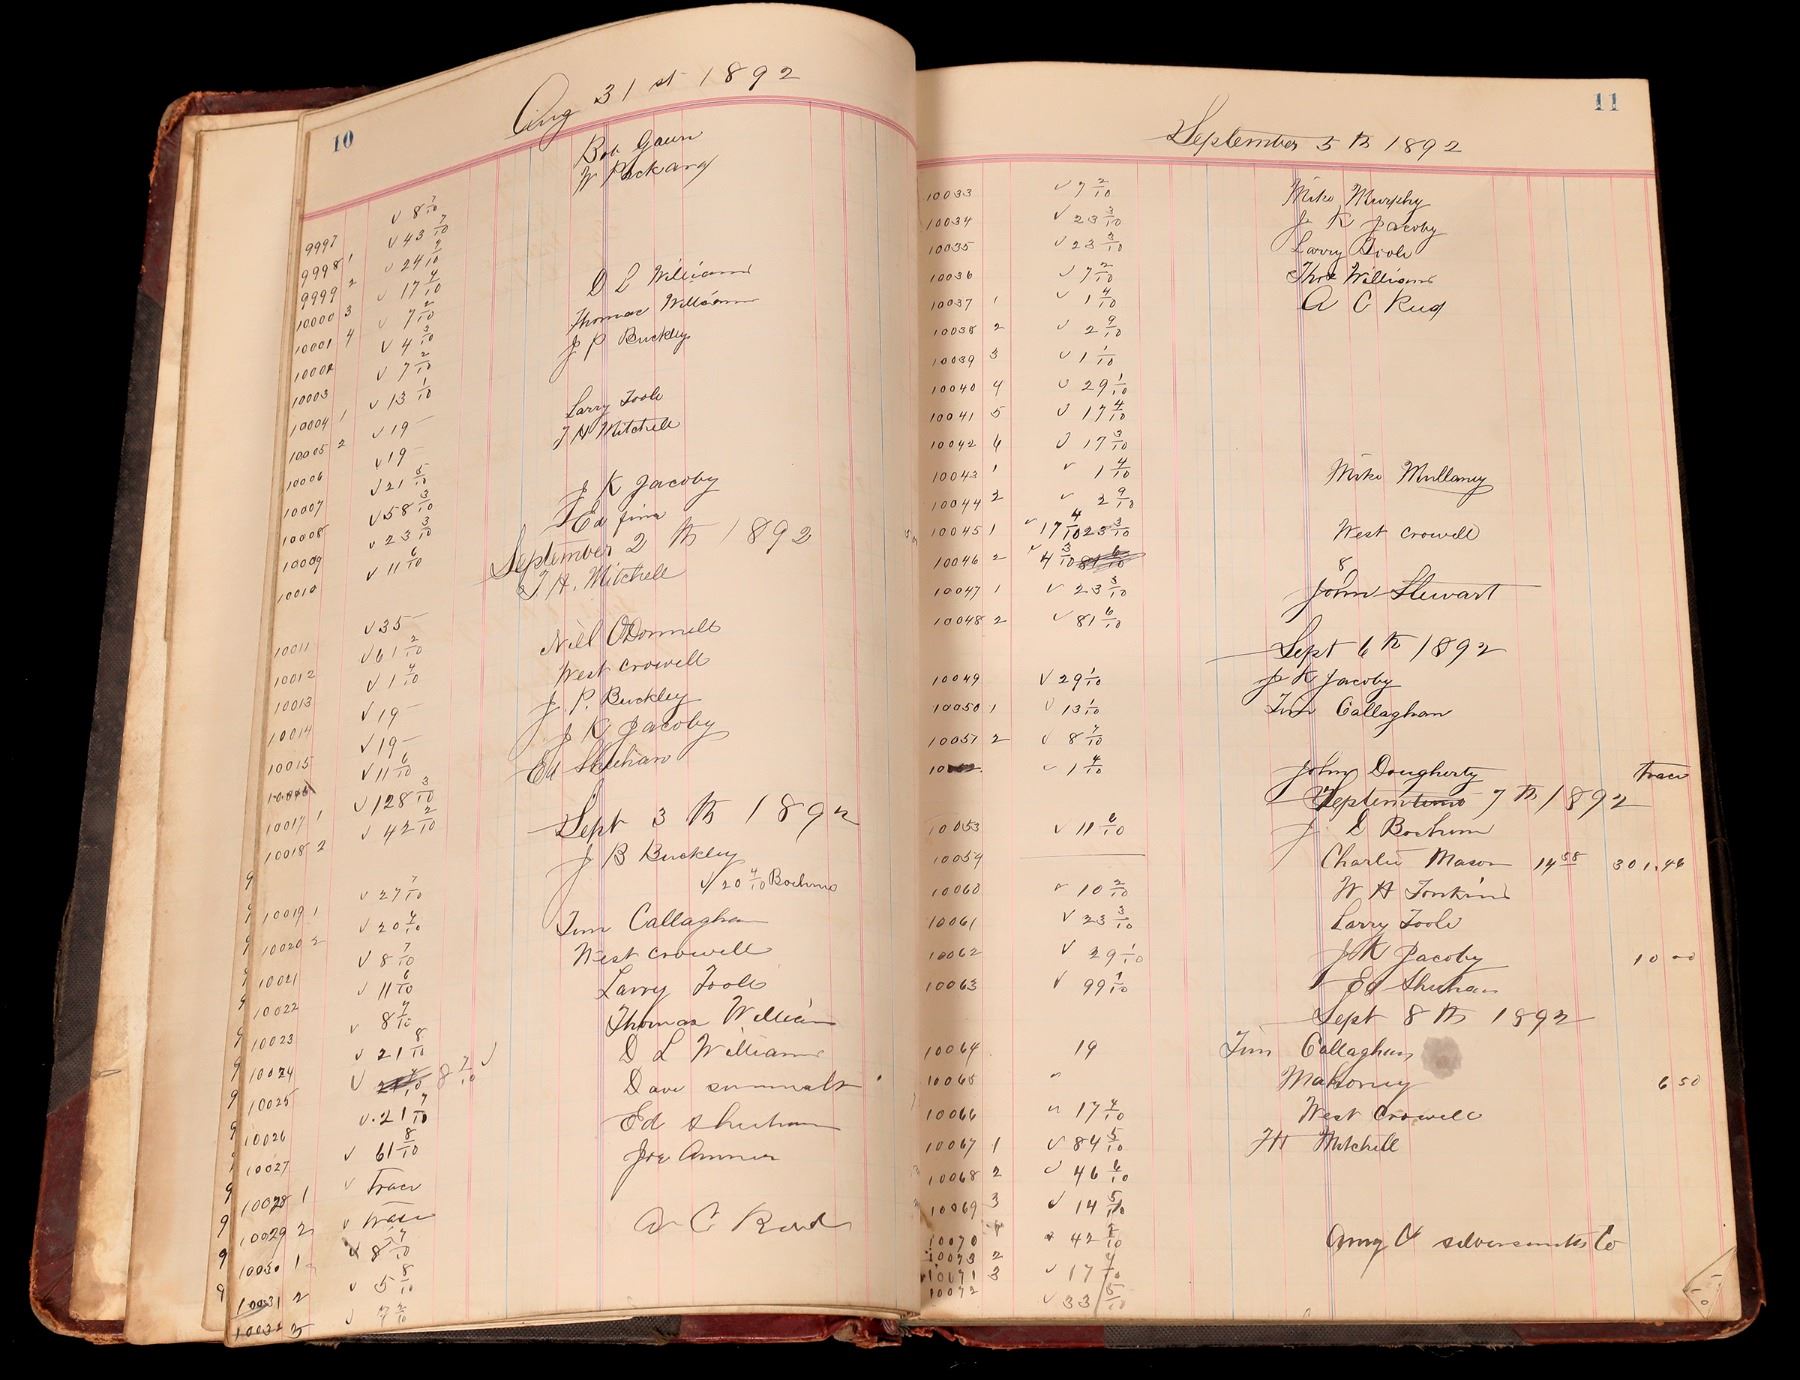 10
Aug 31 st 1892
Bob Gaun
W Packard
9997 √ 8 7/10
9998 1 √ 43 7/10
9999 2 √ 24 2/10
10000 3 √ 17 4/10 D L Williams
10001 4 √ 7 2/10 Thomas Williams
10002 √ 4 3/10 J P Buckley
10003 √ 7 2/10
10004 1 √ 13 1/10 Larry Toole
10005 2 √ 19 — T H Mitchell
10006 √ 19 —
10007 √ 21 5/10 J K Jacoby
10008 √ 58 3/10 Ed
10009 √ 23 3/10 September 2 th 1892
10010 √ 11 6/10 T H. Mitchell
10011 √ 35 — Niel O'Donnell
10012 √ 61 2/10 West Crowell
10013 √ 1 4/10 J. P. Buckley
10014 √ 19 — J K Jacoby
10015 √ 19 — Ed Shuhan
√ 11 6/10
10017 1 √ 128 3/10 Sept 3 th 1892
10018 2 √ 42 2/10 J B Buckley
√ 20 4/10 Bochmo
10019 1 √ 27 7/10 Tim Callaghan
10020 2 √ 20 4/10 West Crowell
10021 √ 8 7/10 Larry Toole
10022 √ 11 6/10 Thomas William
10023 √ 8 4/10 D L Williams
10024 √ 21 8/10 Dave
10025 √ 8 7/10 √ Ed Shuhan
10026 √ . 21 7/10 Joe
10027 √ 61 8/10
10028 1 √ Trace A C Reed
10029 2 √ Trace
10030 1 √ 8 7/10
10031 2 √ 5 8/10
10032 3 √ 7 2/10
11
September 5 th 1892
10033 √ 7 2/10 Mike Murphy
10034 √ 23 3/10 J K Jacoby
10035 √ 23 3/10 Larry Toole
10036 √ 7 2/10 Thos Williams
10037 1 √ 1 4/10 A C Reed
10038 2 √ 2 9/10
10039 3 √ 1 1/10
10040 4 √ 29 1/10
10041 5 √ 17 4/10
10042 6 √ 17 3/10
10043 1 √ 1 4/10 Mike Mullaney
10044 2 √ 2 9/10
10045 1 √ 17 4/10 23 3/10 West Crowell
10046 2 √ 4 3/10 8
10047 1 √ 23 3/10 John Stewart
10048 2 √ 81 6/10
Sept 6 th 1892
10049 √ 29 1/10 J K Jacoby
10050 1 √ 13 1/10 Tim Callaghan
10051 2 √ 8 7/10
√ 1 4/10 John Dougherty Trace
September 7 th 1892
10053 √ 11 6/10 J. D Bochum
10059 — Charlie Mason 14 58 301.46
10060 √ 10 2/10 W H Tonkins
10061 √ 23 3/10 Larry Toole
10062 √ 29 1/10 J K Jacoby 10 00
10063 √ 99 1/10 Ed Shuhan
Sept 8 th 1892
10064 19 Tim Callaghan
10065 √ Mahoney 6 50
10066 √ 17 4/10 West Crowell
10067 1 √ 84 5/10 T H Mitchell
10068 2 √ 46 6/10
10069 3 √ 14 5/10
10070 4 √ 42 2/10 Amy & silversmith Co
10073 2
10071 3 √ 17 4/10
10072 √ 33 5/10